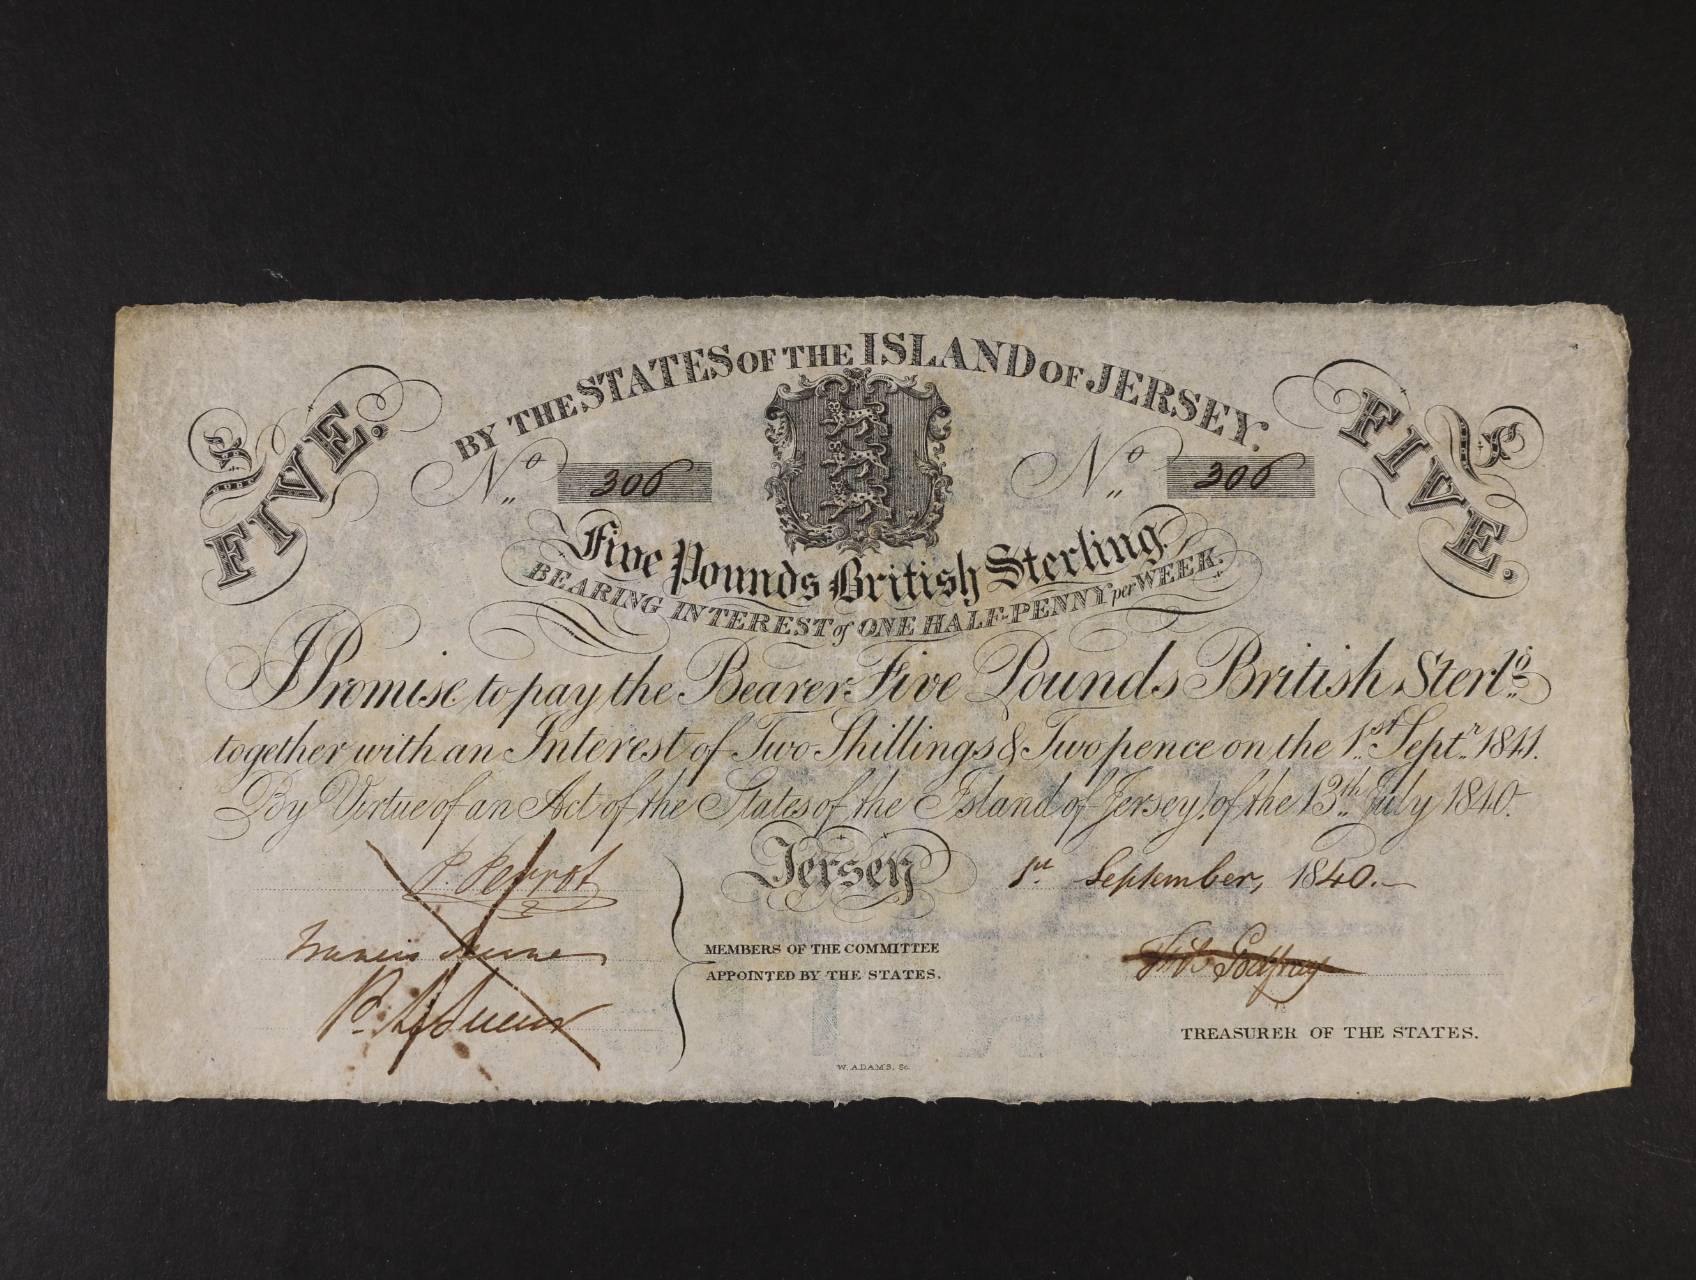 BY THE STATES OF THE ISLAND OF JERSEY.
£ FIVE.
£ FIVE.
No 306
No 306
Five Pounds British Sterling
BEARING INTEREST of ONE HALF-PENNY per WEEK.
I Promise to pay the Bearer Five Pounds British Sterlg.
together with an Interest of Two Shillings & Two pence on the 1st Septr. 1841.
By Virtue of an Act of the States of the Island of Jersey, of the 13th July 1840.
Jersey 1st September, 1840.
P. Perrot
Francis
P.
MEMBERS OF THE COMMITTEE
APPOINTED BY THE STATES.
Godfray
TREASURER OF THE STATES.
W. ADAMS, Sc.